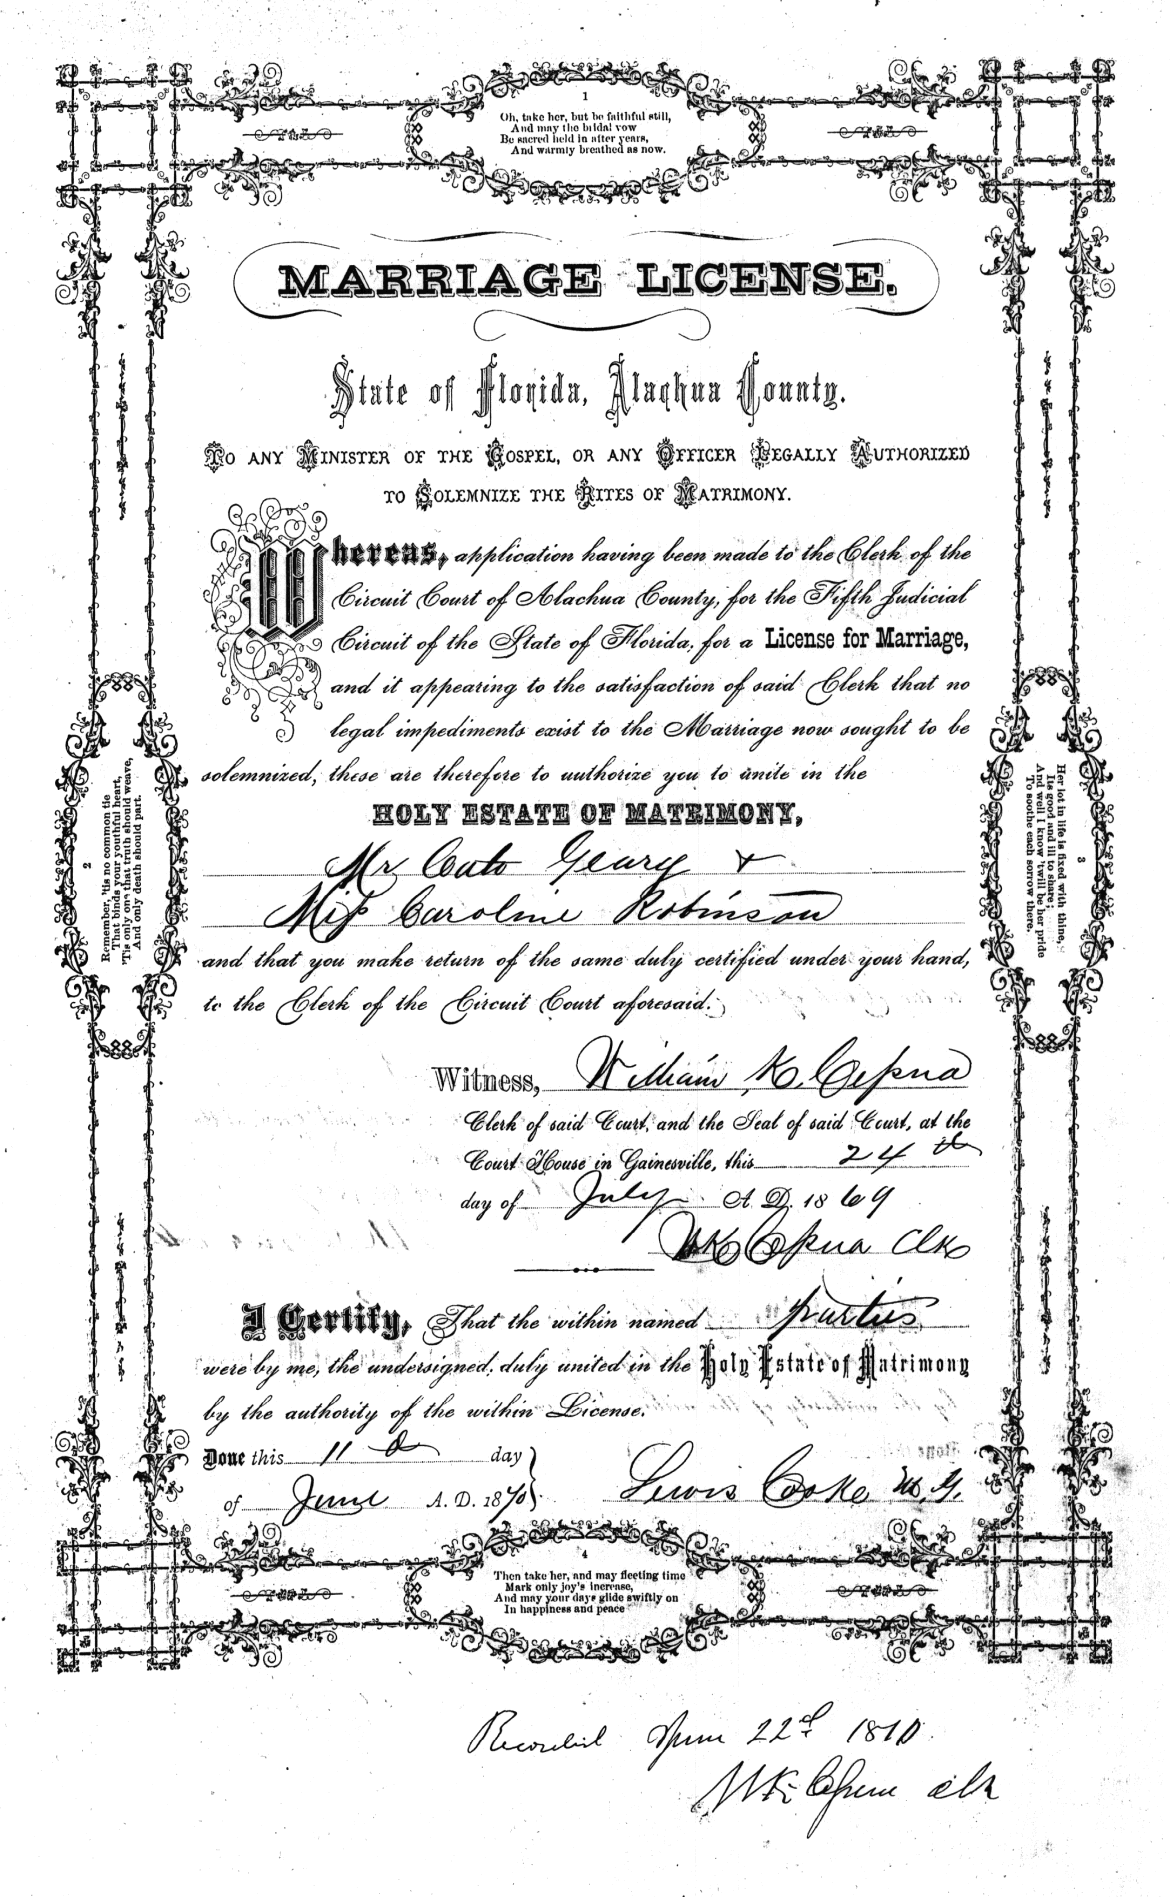 1
Oh, take her, but be faithful still,
And may the bridal vow
Be sacred held in after years,
And warmly breathed as now.
MARRIAGE LICENSE.
State of Florida, Alachua County.
TO ANY MINISTER OF THE GOSPEL, OR ANY OFFICER LEGALLY AUTHORIZED
TO SOLEMNIZE THE RITES OF MATRIMONY.
Whereas, application having been made to the Clerk of the
Circuit Court of Alachua County, for the Fifth Judicial
Circuit of the State of Florida, for a License for Marriage,
and it appearing to the satisfaction of said Clerk that no
legal impediments exist to the Marriage now sought to be
solemnized, these are therefore to authorize you to unite in the
HOLY ESTATE OF MATRIMONY,
Mr Cato Geary &
Miss Caroline Robinson
and that you make return of the same duly certified under your hand,
to the Clerk of the Circuit Court aforesaid.
Witness, William K. Cessna
Clerk of said Court, and the Seal of said Court, at the
Court House in Gainesville, this 24th
day of July A. D. 1869
WK Cessna Clk
I Certify, That the within named parties
were by me, the undersigned, duly united in the Holy Estate of Matrimony
by the authority of the within License.
Done this 11th day
of June A. D. 1870
Lewis Cooke M. G.
2
Remember, 'tis no common tie
That binds your youthful heart,
'Tis only one that truth should weave,
And only death should part.
3
Her lot in life is fixed with thine,
Its good and ill to share;
And well I know 'twill be her pride
To soothe each sorrow there.
4
Then take her, and may fleeting time
Mark only joy's increase,
And may your days glide swiftly on
In happiness and peace
Recorded June 22d 1870.
WK Cessna clk